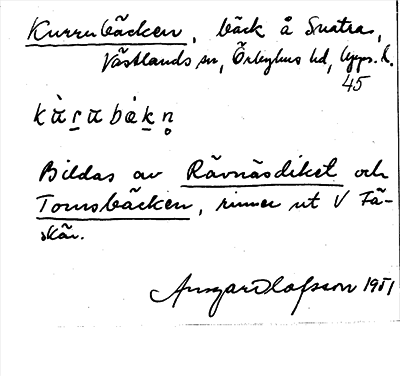 Kurrubäcken, bäck å Snatra,
Västlands sn, Örbyhus hd, Upps. l.
45
kȁṟabákn̥
Bildas av Rävnäsdiket och
Tomsbäcken, rinner ut V Fä-
skär.
Ansgar Olofsson 1951